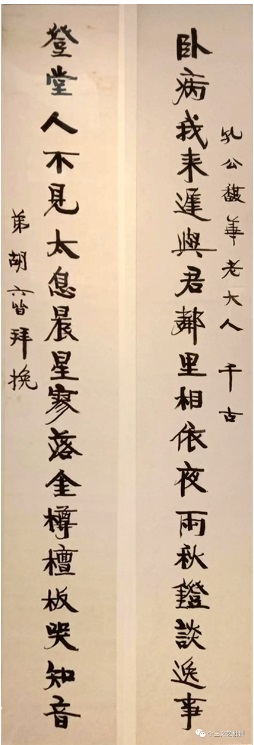 孔公馥華老大人 千古
卧病我来遲與君鄰里相依夜雨秋鐙談逸事
登堂人不見太息晨星寥落金樽檀板哭知音
弟胡六皆拜挽